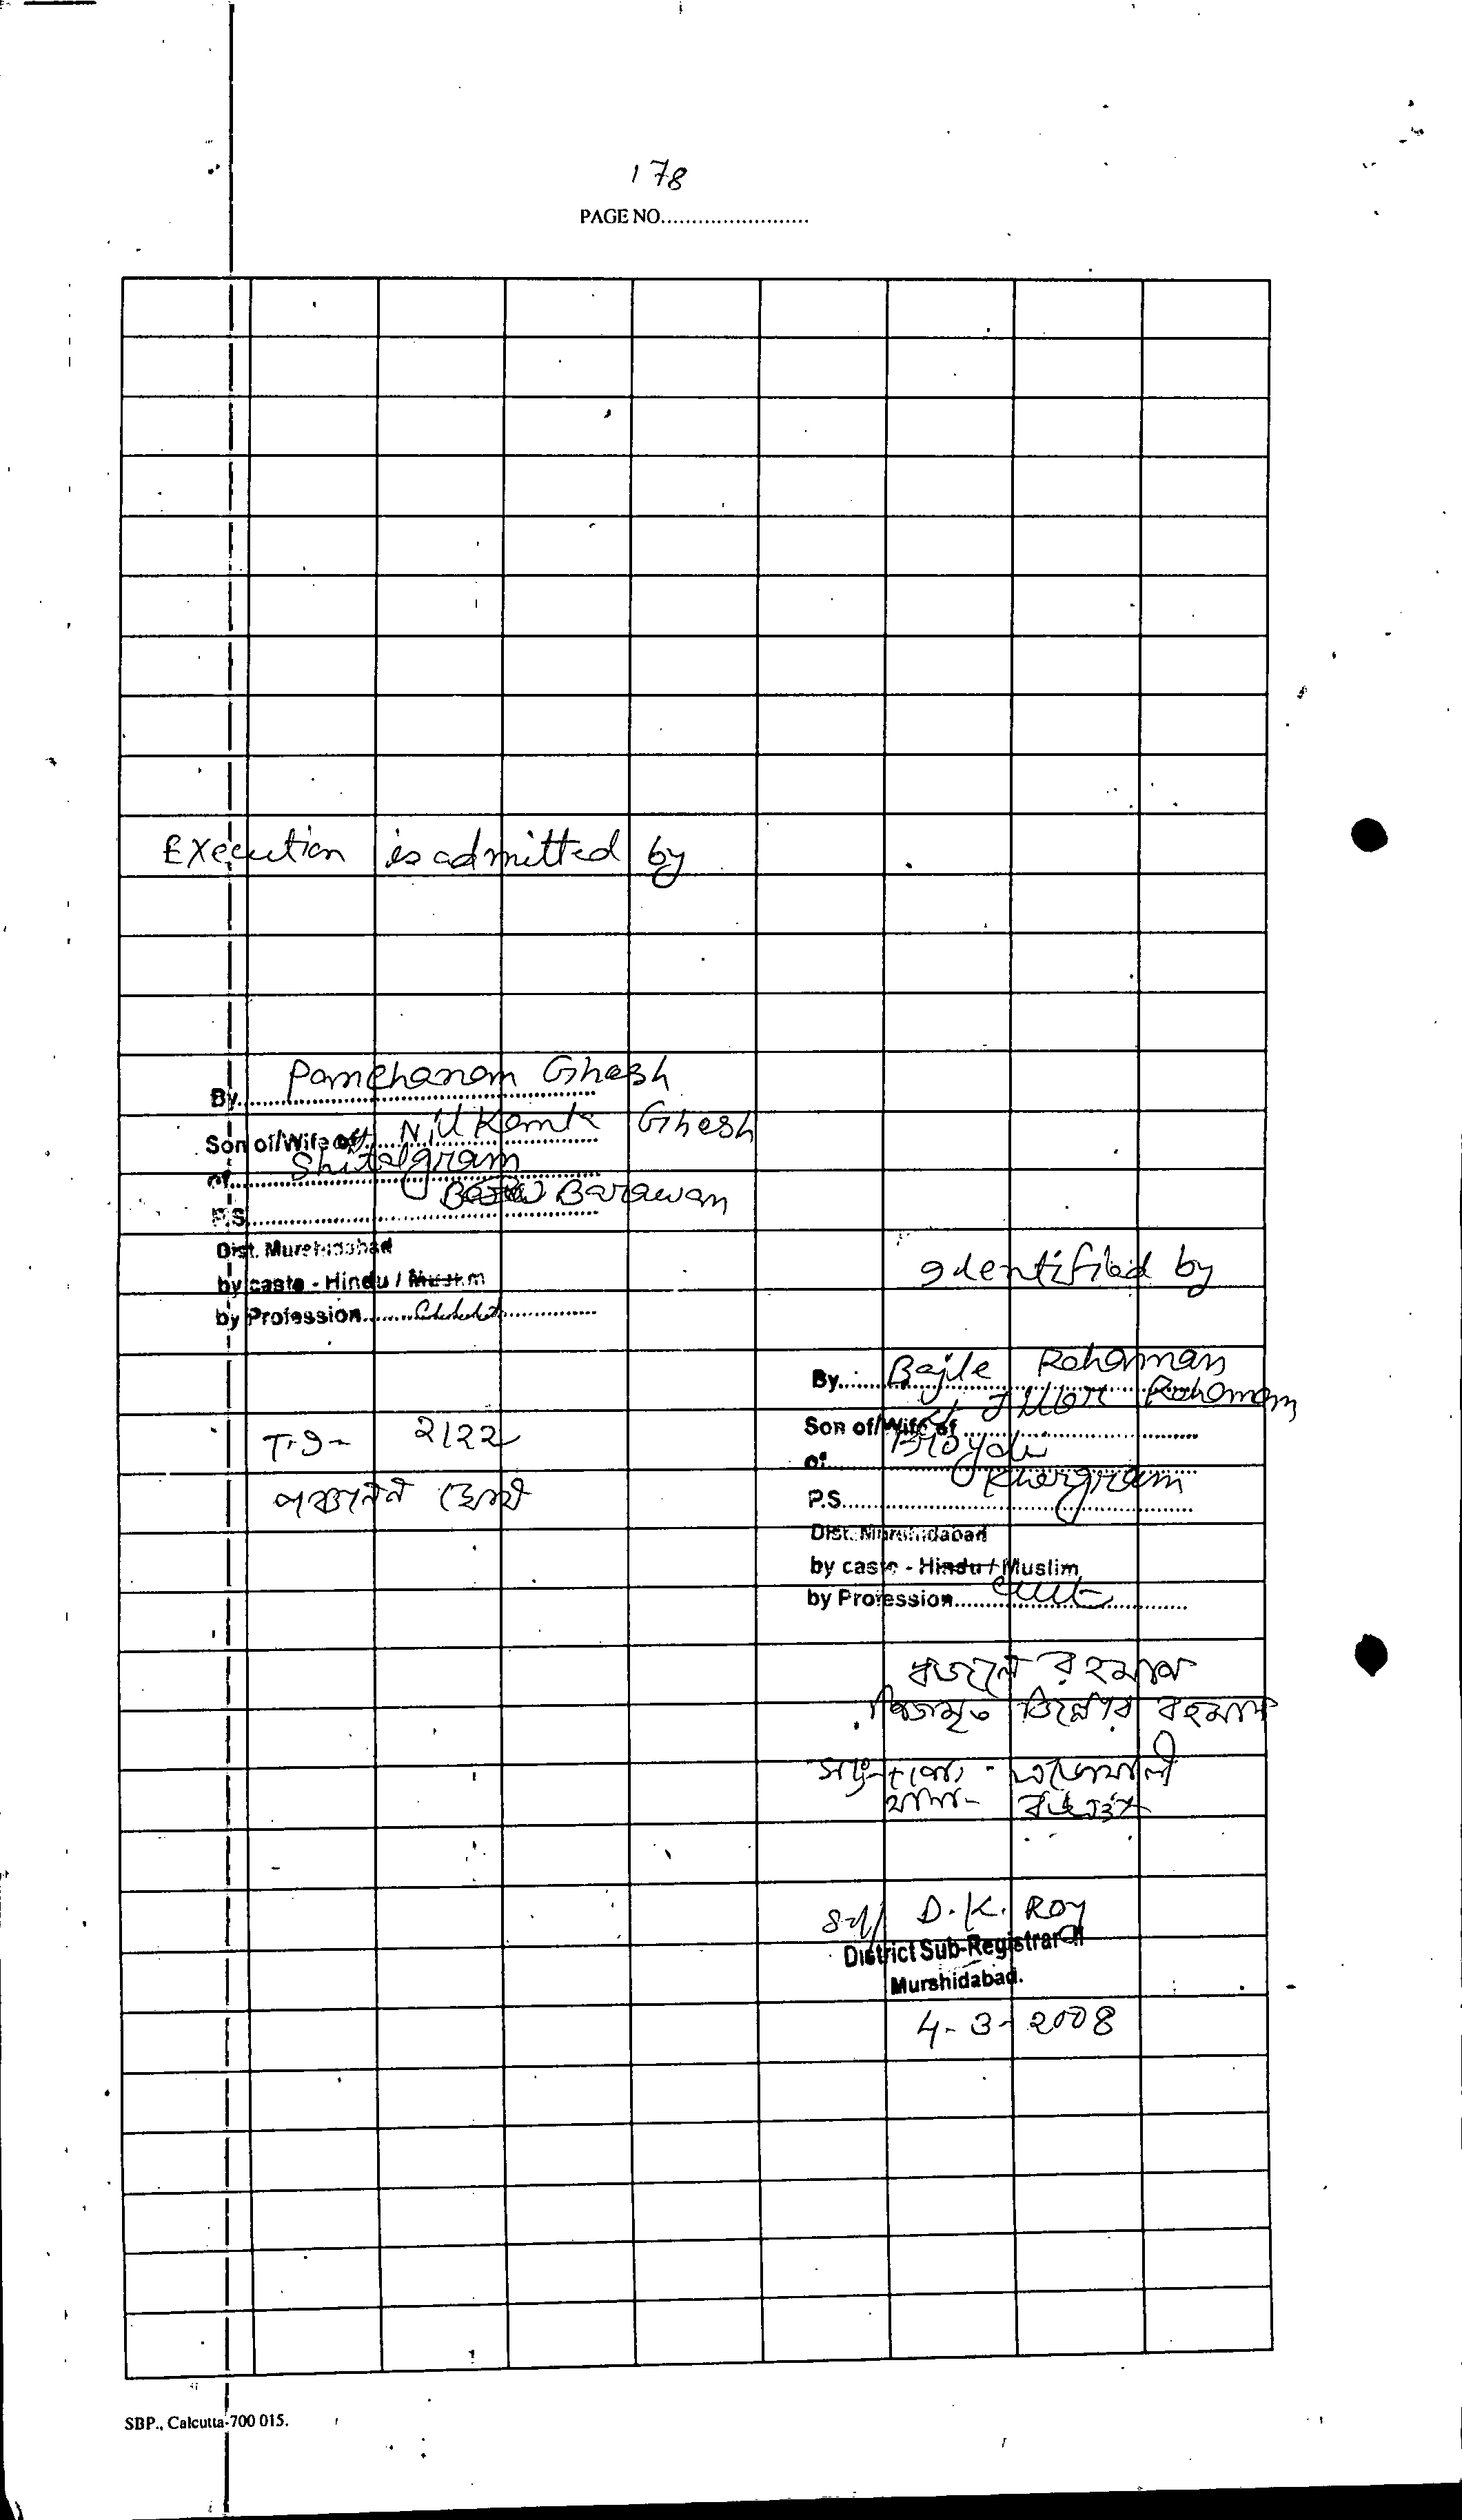 178
PAGE NO........................
Execution is admitted by
By Panchanan Ghosh
Son of/Wife of Lt Nil Kanta Ghosh
of Shitalgram
P.S. Barawan
Dist. Murshidabad
by caste - Hindu / Muslim
by Profession
Identified by
By Bajle Rohaman
Son of/Wife of Lt Jillar Rohaman
of
P.S. Khargram
Dist. Murshidabad
by caste - Hindu / Muslim
by Profession
T.I- 2122
পঞ্চানন ঘোষ
বজলে রহমান
রহমান
থানা-
Sd/ D. K. Roy
District Sub-Registrar II
Murshidabad.
4-3-2008
SBP., Calcutta-700 015.